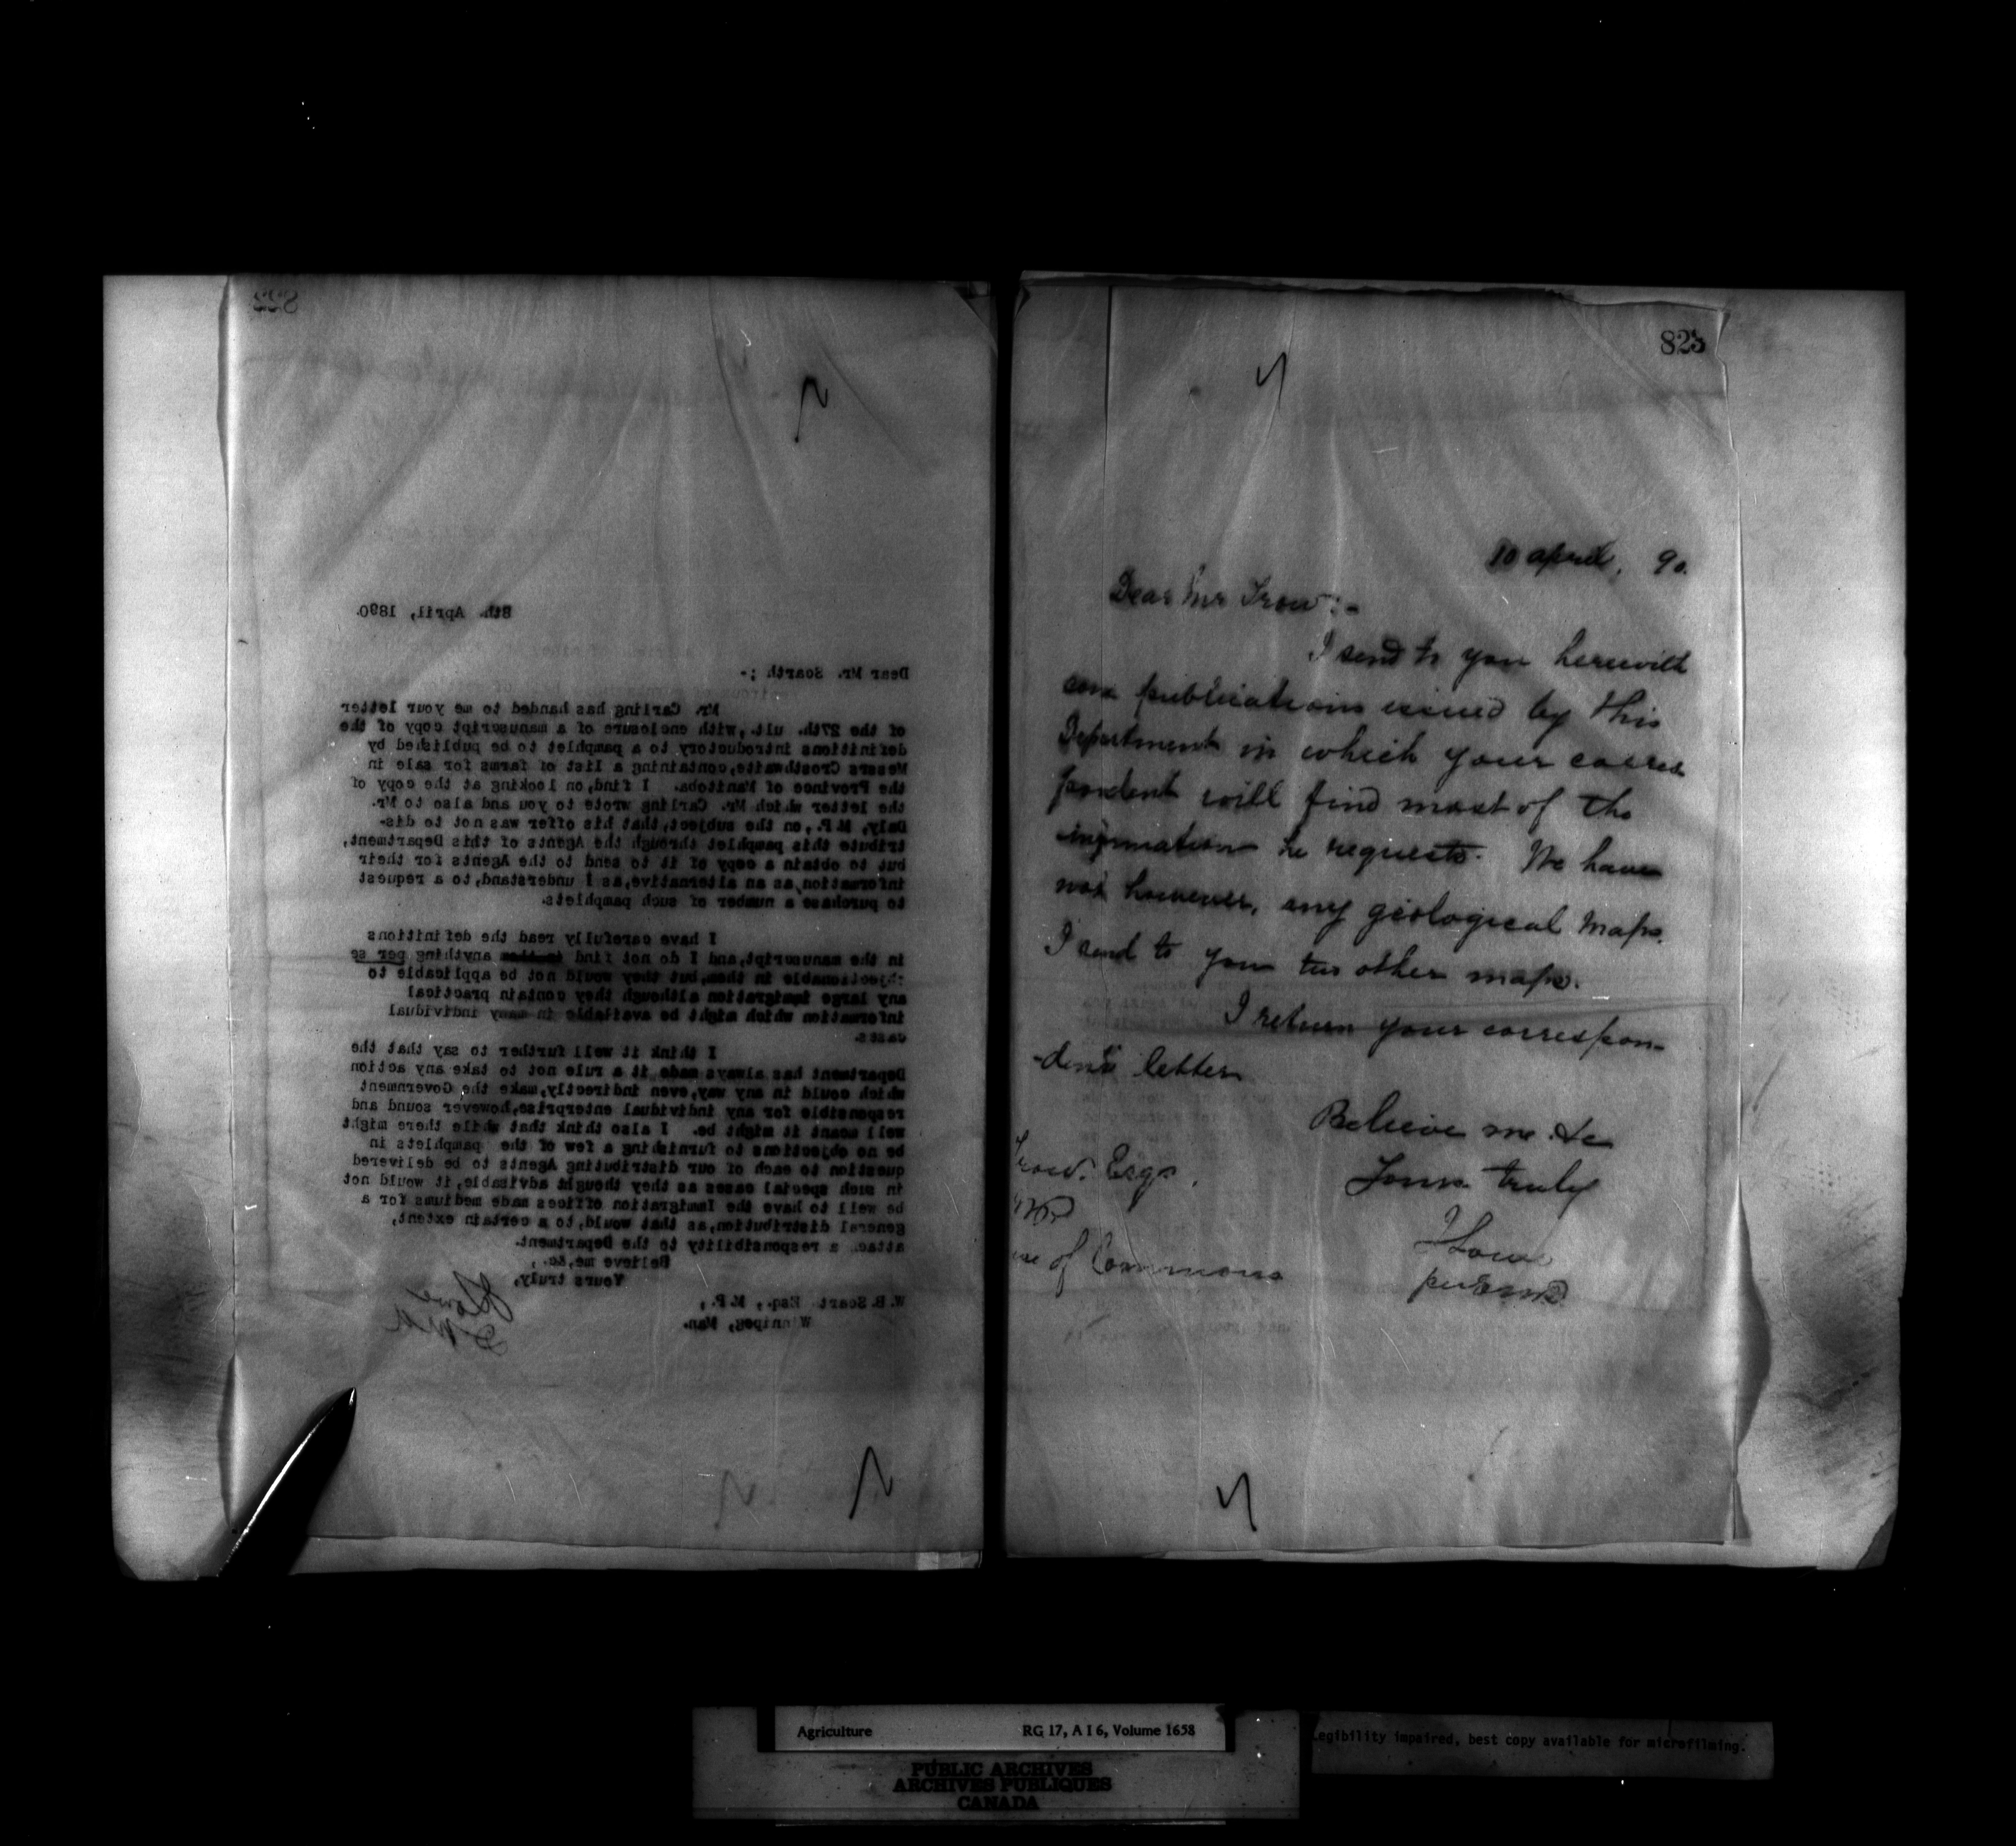 822
8th. April, 1890.
Dear Mr. Scarth ;-
Mr. Carling has handed to me your letter
of the 27th. ult.,with enclosure of a manuscript copy of the
definitions introductory to a pamphlet to be published by
Messrs Crosthwaite,containing a list of farms for sale in
the Province of Manitoba. I find,on looking at the copy of
the letter which Mr. Carling wrote to you and also to Mr.
Daly, M.P.,on the subject,that his offer was not to dis-
tribute this pamphlet through the Agents of this Department,
but to obtain a copy of it to send to the Agents for their
information,as an alternative,as I understand,to a request
to purchase a number of such pamphlets.
I have carefully read the definitions
in the manuscript,and I do not find anything per se
objectionable in them,but they would not be applicable to
any large immigration although they contain practical
information which might be available in many individual
cases.
I think it well further to say that the
Department has always made it a rule not to take any action
which could in any way,even indirectly,make the Government
responsible for any individual enterprise,however sound and
well meant it might be. I also think that while there might
be no objections to furnishing a few of the pamphlets in
question to each of our distributing Agents to be delivered
in such special cases as they thought advisable,it would not
be well to have the Immigration offices made mediums for a
general distribution,as that would,to a certain extent,
attach a responsibility to the Department.
Believe me,&c.,
Yours truly,
J Lowe
W.B.Scart Esq., M.P.,
Winnipeg, Man.
823
10 April, 90.
Dear Mr Trow:-
I send to you herewith
some publications issued by this
Department in which your corres
pondent will find most of the
information he requests. We have
not however, any geological maps.
I send to you two other maps.
I return your correspon-
-dent's letter
Believe me &c
Yours truly
J Lowe
Trow. Esqr.
MP
use of Commons
Agriculture RG 17, A I 6, Volume 1658
PUBLIC ARCHIVES
ARCHIVES PUBLIQUES
CANADA
Legibility impaired, best copy available for microfilming.